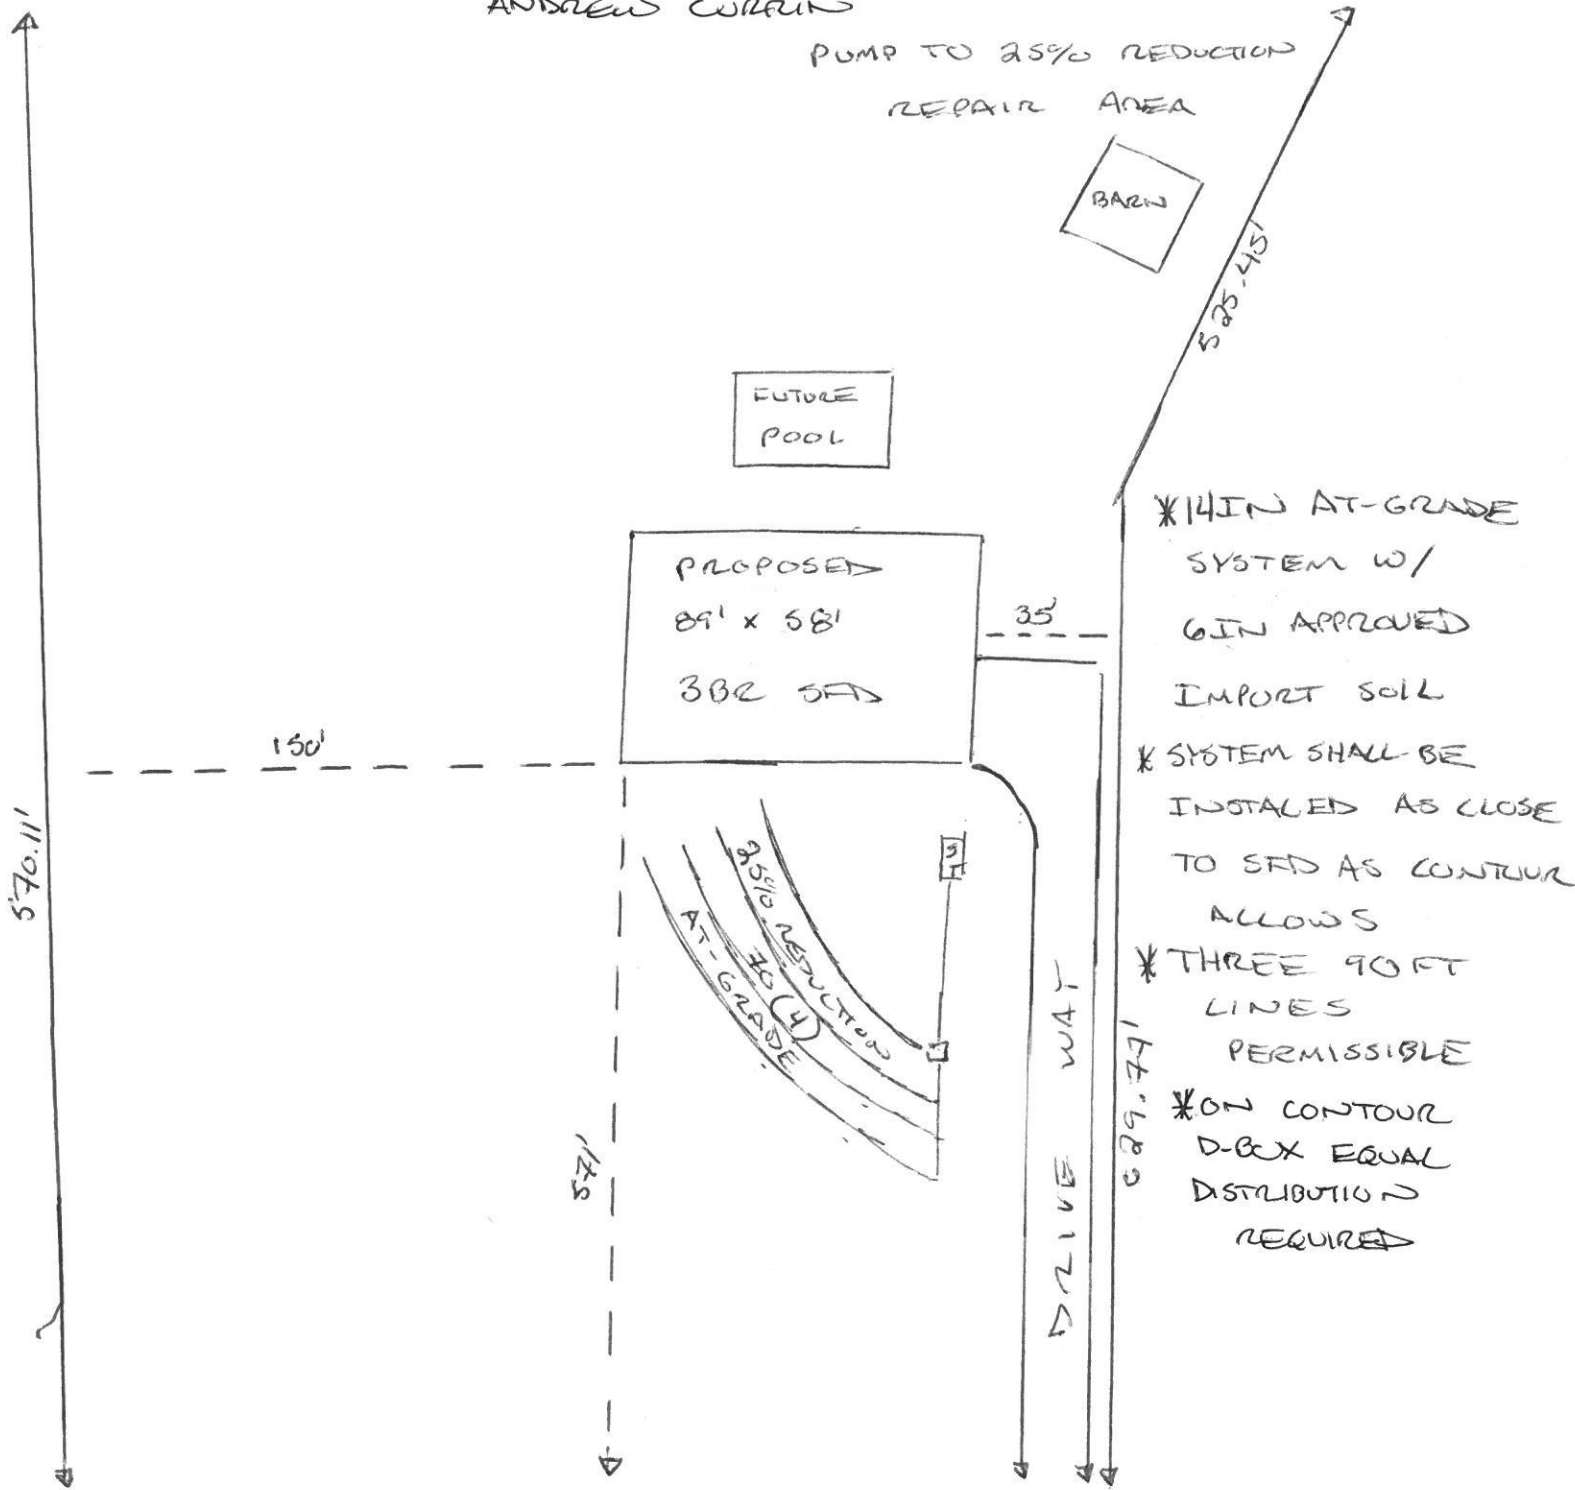 ANDREW CURRIN
PUMP TO 25% REDUCTION
REPAIR AREA
BARN
525.45'
FUTURE
POOL
PROPOSED
89' x 58'
3BR SFD
35'
150'
570.11'
571'
25% REDUCTION
70 (4)
AT-GRADE
ST
DRIVE WAY
*14IN AT-GRADE
SYSTEM W/
6IN APPROVED
IMPORT SOIL
* SYSTEM SHALL BE
INSTALED AS CLOSE
TO SFD AS CONTOUR
ALLOWS
* THREE 90FT
LINES
PERMISSIBLE
*ON CONTOUR
D-BOX EQUAL
DISTRIBUTION
REQUIRED